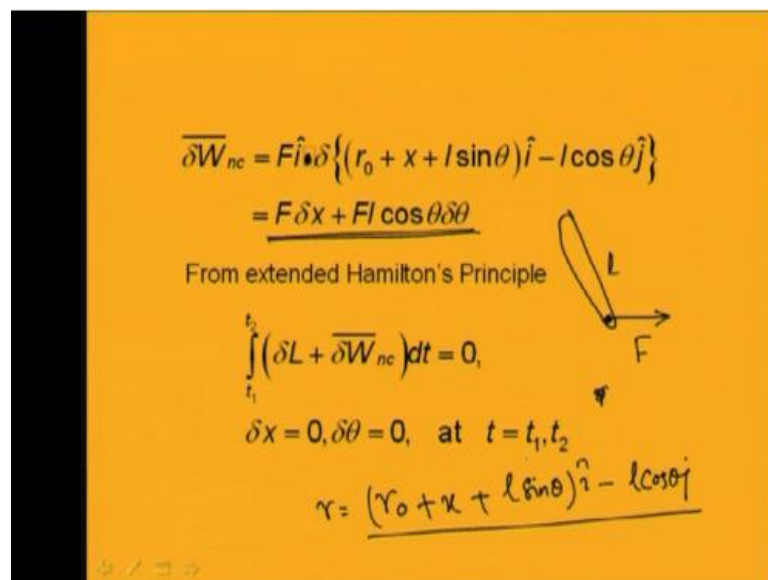 δW̅nc = Fî•δ{(r₀ + x + l sinθ)î − l cos θĵ}
= F δx + Fl cos θδθ
From extended Hamilton's Principle
l
F
∫_{t₁}^{t₂} (δL + δW̅nc)dt = 0,
δx = 0, δθ = 0, at t = t₁, t₂
r = (r₀ + x + l sinθ)î − l cosθj